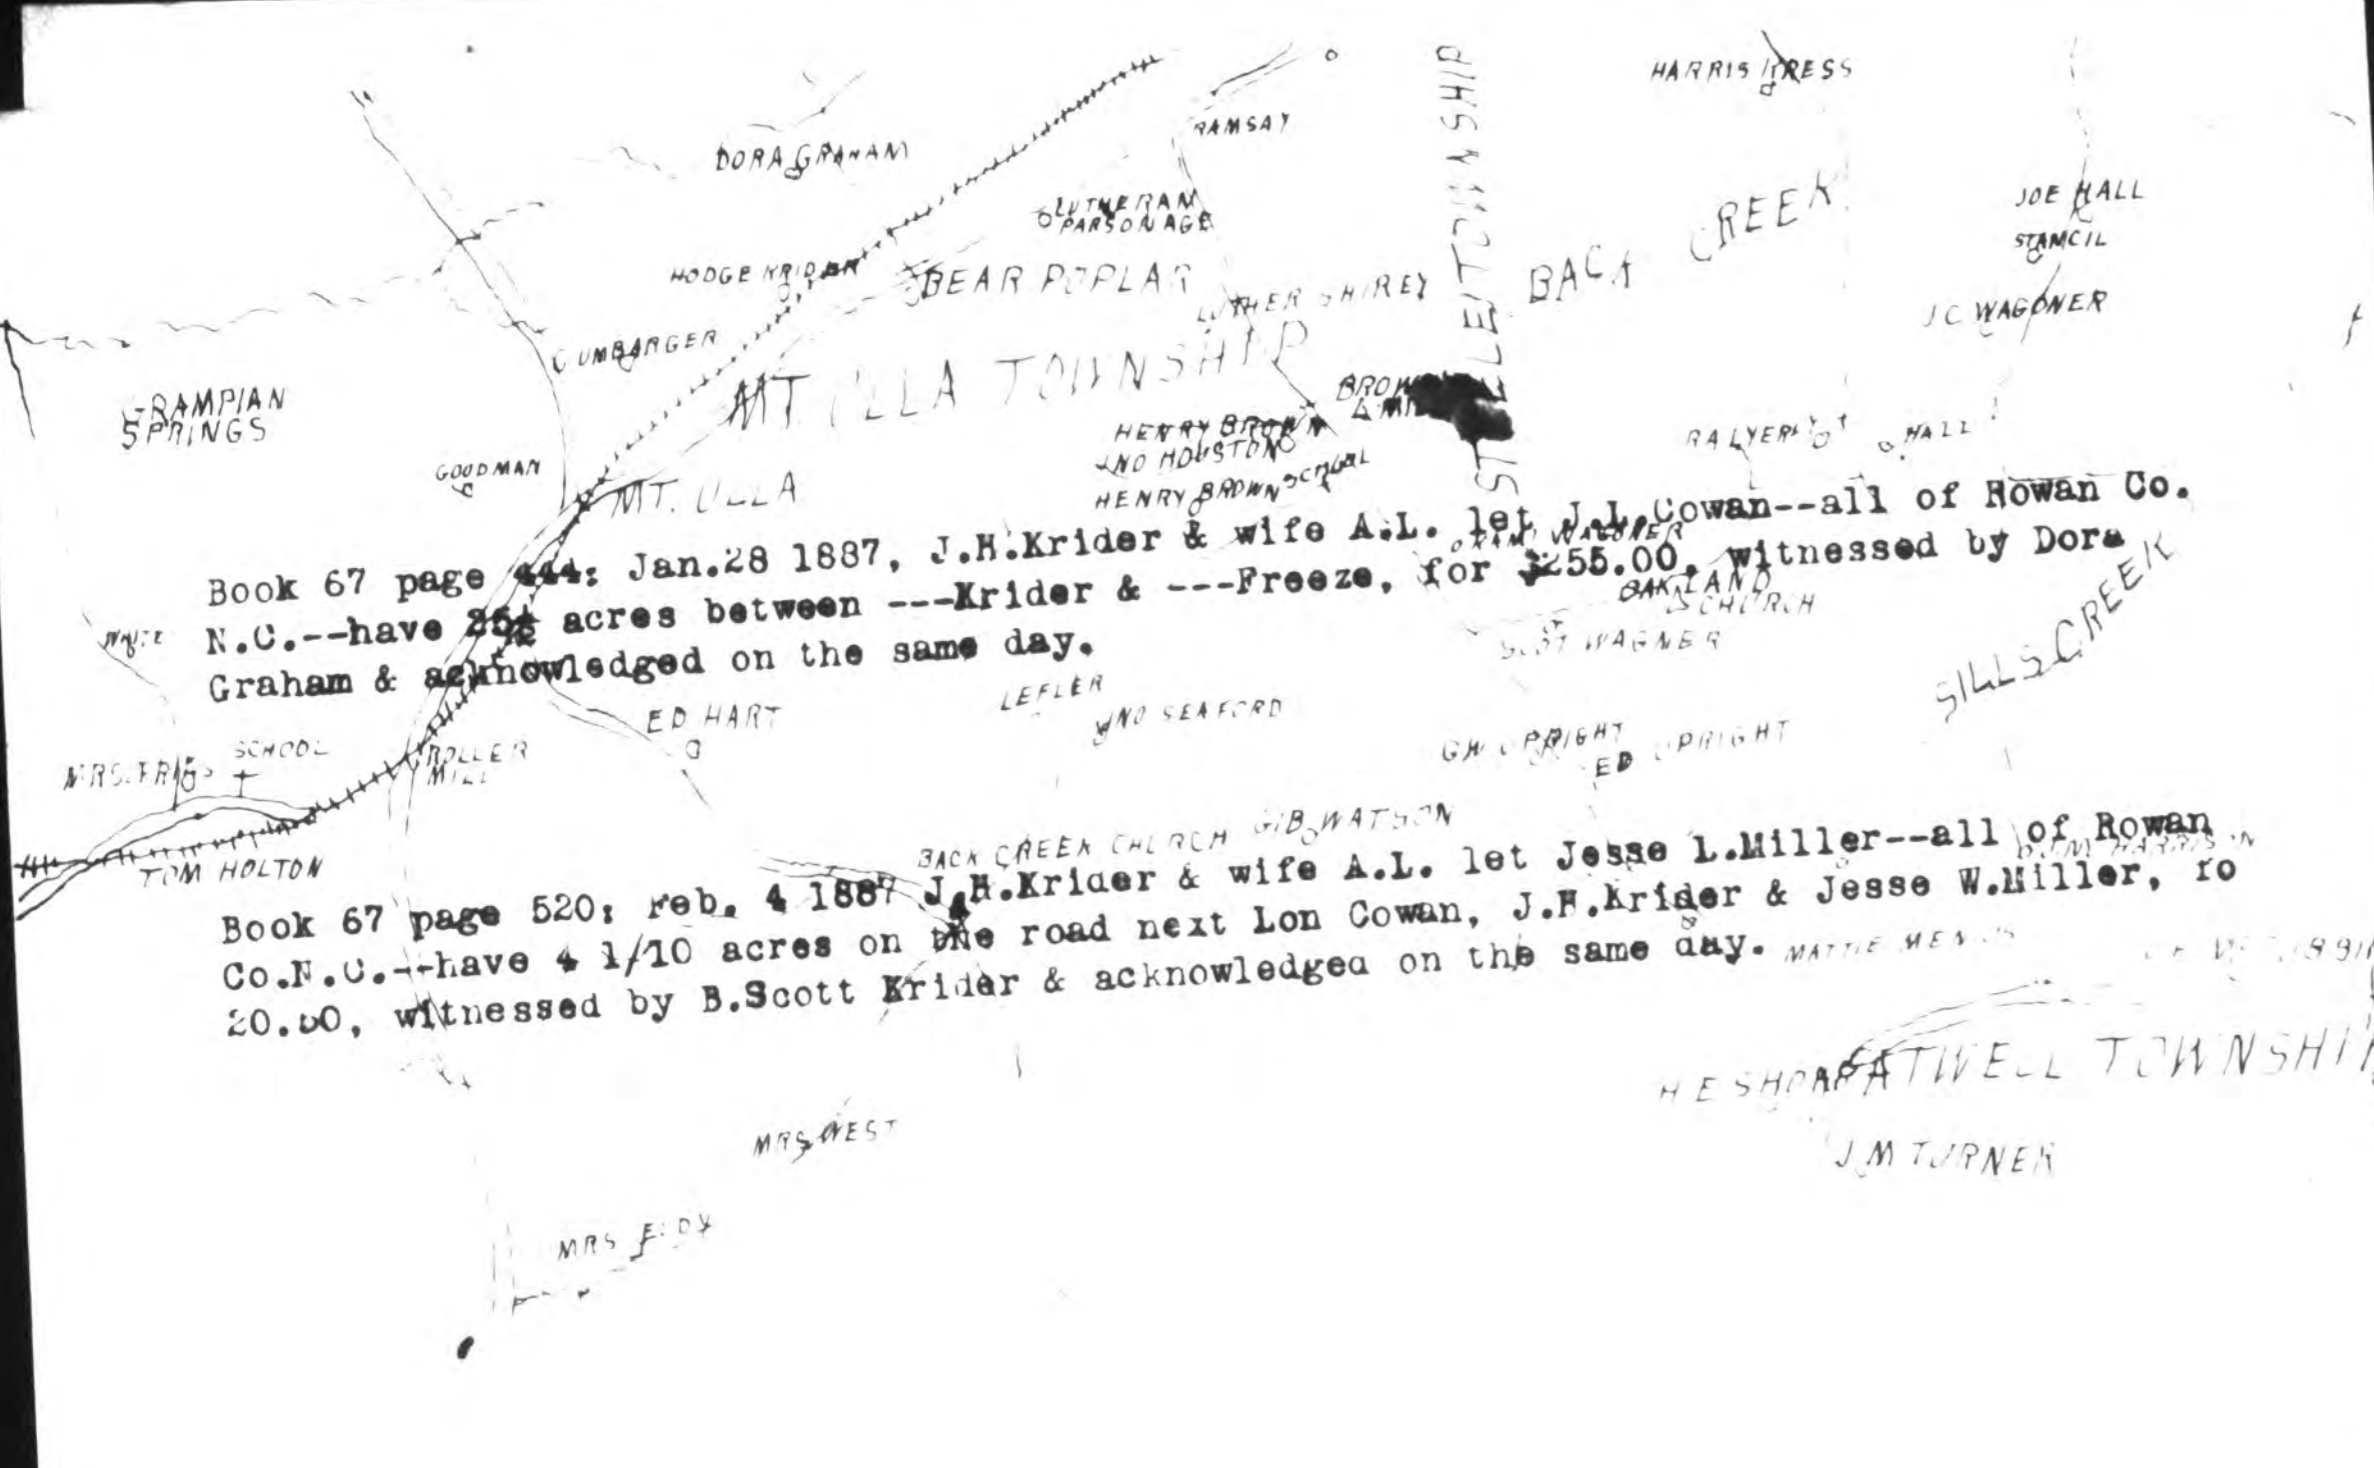 HARRIS KRESS
RAMSAY
DORA GRAHAM
LUTHERAN
PARSONAGE
STEELE TOWNSHIP
JOE HALL
STAMCIL
BACK CREEK
HODGE KRIDER
BEAR POPLAR
LUTHER SHIREY
J C WAGONER
CUMBARGER
MT. ULLA TOWNSHIP
GRAMPIAN
SPRINGS
HENRY BROWN
JNO HOUSTON
HENRY BROWN SCHOOL
HALL
GOODMAN
MT. ULLA
Book 67 page 444: Jan.28 1887, J.H.Krider & wife A.L. let J.L.Cowan--all of Rowan Co.
N.C.--have acres between ---Krider & ---Freeze, for $255.00, witnessed by Dora
Graham & acknowledged on the same day.
WAGONER
OAKLAND
CHURCH
WHITE
SCOT WAGNER
SILLS CREEK
LEFLER
JNO SEAFORD
ED HART
G W UPRIGHT
ED UPRIGHT
SCHOOL
ROLLER
MILL
TOM HOLTON
BACK CREEK CHURCH
GIB WATSON
Book 67 page 520: Feb. 4 1887 J.H.Krider & wife A.L. let Jesse L.Miller--all of Rowan
Co.N.C.--have 4 1/10 acres on the road next Lon Cowan, J.H.Krider & Jesse W.Miller, fo
20.50, witnessed by B.Scott Krider & acknowledged on the same day.
MATTIE
ATWELL TOWNSHIP
H E SHOAF
J M TURNER
MRS WEST
MRS EDDY